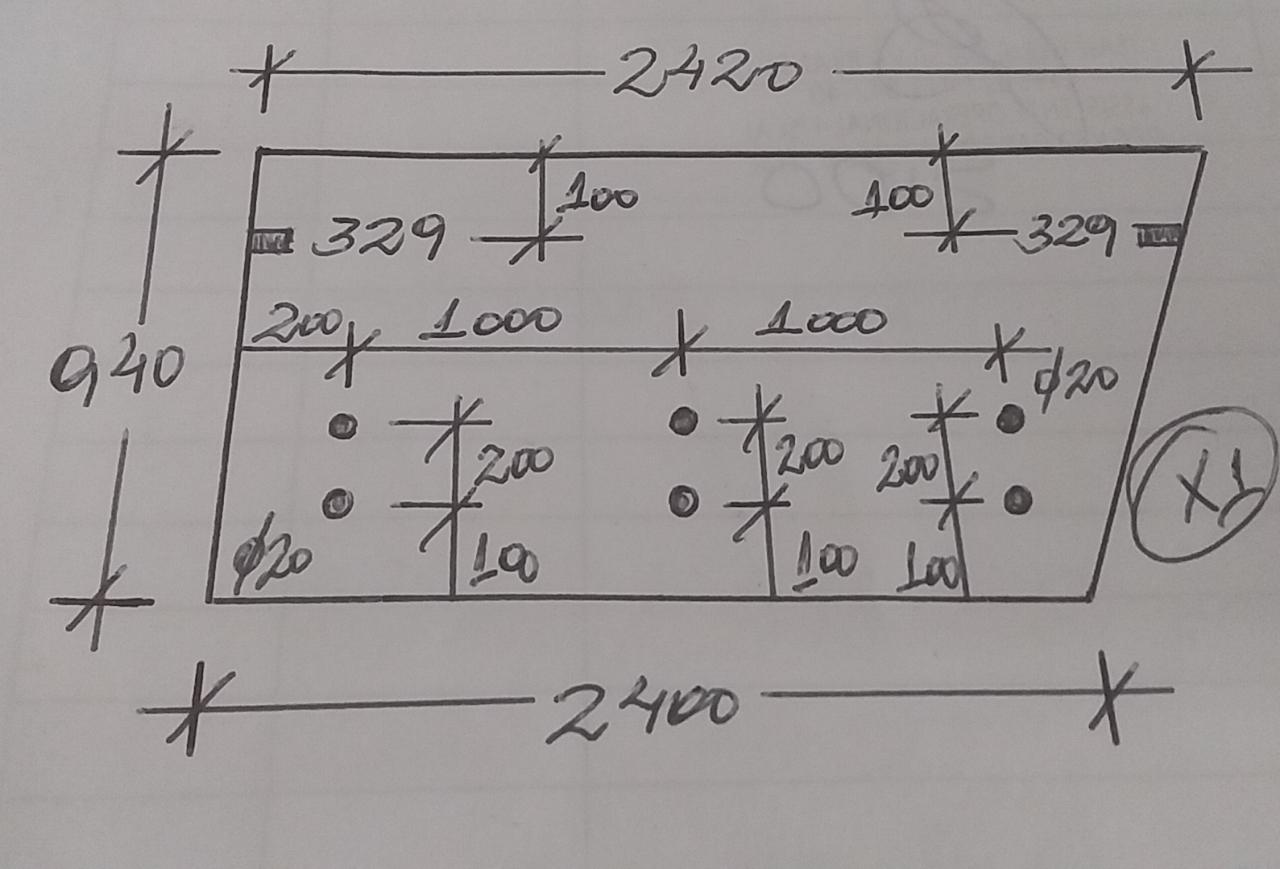 2420
100 100
329 329
200 1000 1000
940
ϕ20
200 200 200
X1
ϕ20 100 100 100
2400